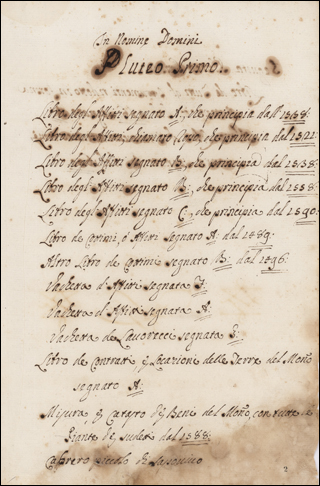 In Nomine Domini
Pluteo Primo
Libro degli Affitti segnato A: che principia dall'
Libro degli Affitti che principia dal
Libro degli Affitti segnato B: che principia dal 1538:
Libro degli Affitti segnato B: che principia dal 1558:
Libro degli Affitti segnato C: che principia dal 1590:
Libro de Cottimi, ò Affitti segnato A: dal 1589:
Altro Libro de Cottimi segnato B: dal 1596:
Vacheta d'Affitti segnata
Vacheta d'Affitti segnata A
Vacheta de Lavorecci segnata
Libro de Contratti, e Locazioni delle Terre del
segnato A:
Misura, e Catasto de Beni del con tutte le
Piante de sudetti dal 1588:
piccolo di
2